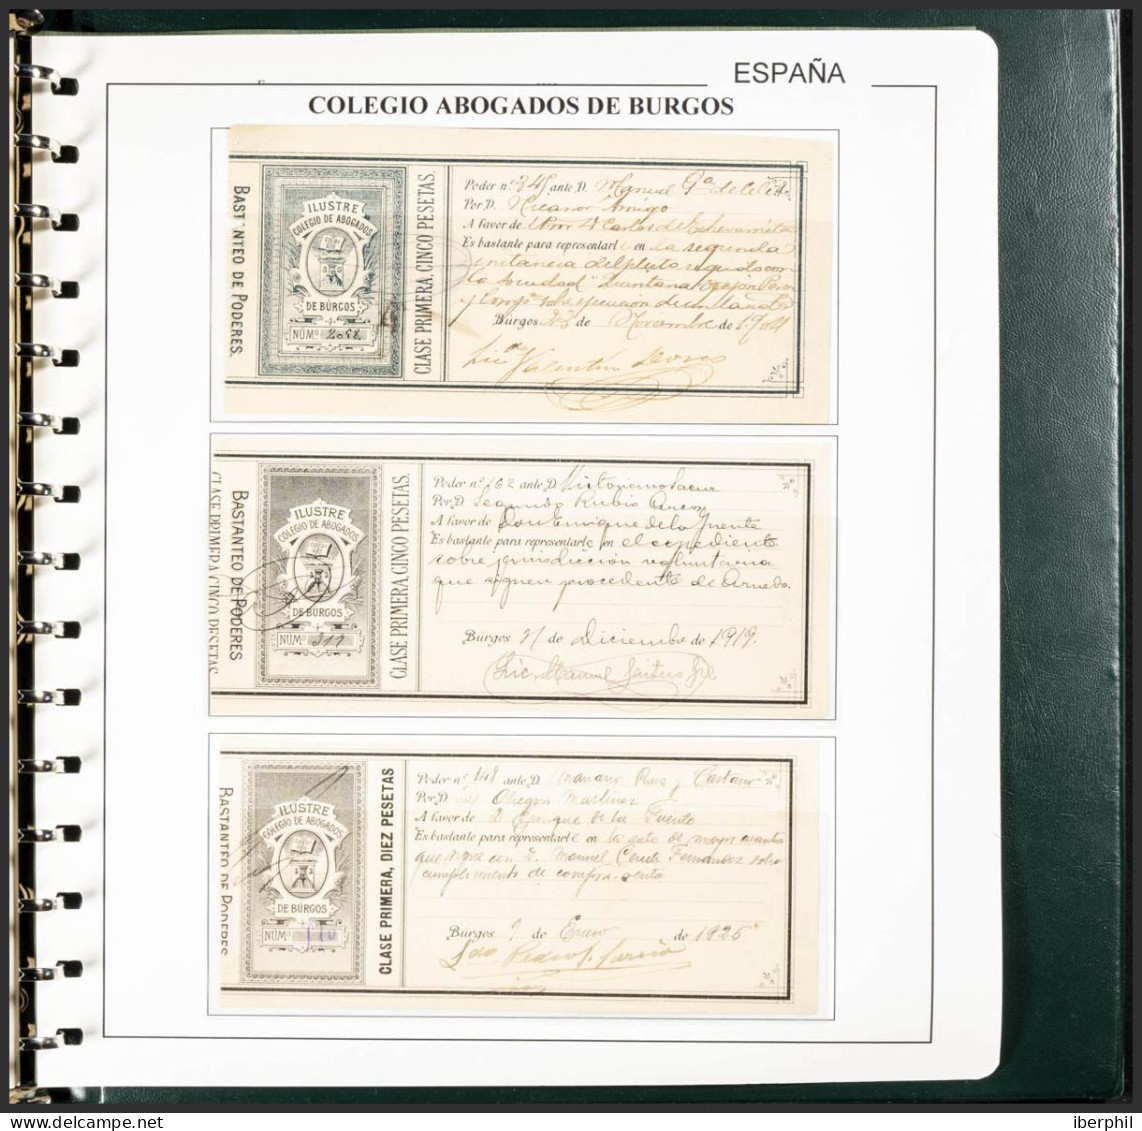 ESPAÑA
COLEGIO ABOGADOS DE BURGOS
BASTANTEO DE PODERES.
ILUSTRE
COLEGIO DE ABOGADOS
DE BURGOS
NÚMº 2058
CLASE PRIMERA, CINCO PESETAS.
Poder n.º 345 ante D. Manuel Gª de Celis
Por D. Nicanor Amigo
A favor de D. Carlos de Echevarrieta
Es bastante para representarle en la segunda
instancia del pleito
la sociedad "Quintana
y Compª sobre
Burgos 23 de Noviembre de 1904
Licdo Valentín
CLASE PRIMERA CINCO PESETAS
BASTANTEO DE PODERES
ILUSTRE
COLEGIO DE ABOGADOS
DE BURGOS
NÚMº 317
CLASE PRIMERA, CINCO PESETAS.
Poder n.º 162 ante D.
Por D. Segundo Rubio
A favor de Don Enrique de la Fuente
Es bastante para representarle en el expediente
sobre jurisdicción voluntaria
que siguen procedente de Arnedo.
Burgos 31 de Diciembre de 1919.
Lic. Manuel Gil
BASTANTEO DE PODERES
ILUSTRE
COLEGIO DE ABOGADOS
DE BURGOS
NÚMº 110
CLASE PRIMERA, DIEZ PESETAS
Poder n.º 148 ante D. Mariano Ruiz y Castaño
Por D. Obegon Martinez
A favor de D. Enrique de la Fuente
Es bastante para representarle en los autos de mayor cuantia
que sigue con D. Manuel Fernandez sobre
cumplimiento de compra-venta
Burgos 9 de Enero de 1925
Ldo Pedro J. García
iberphil